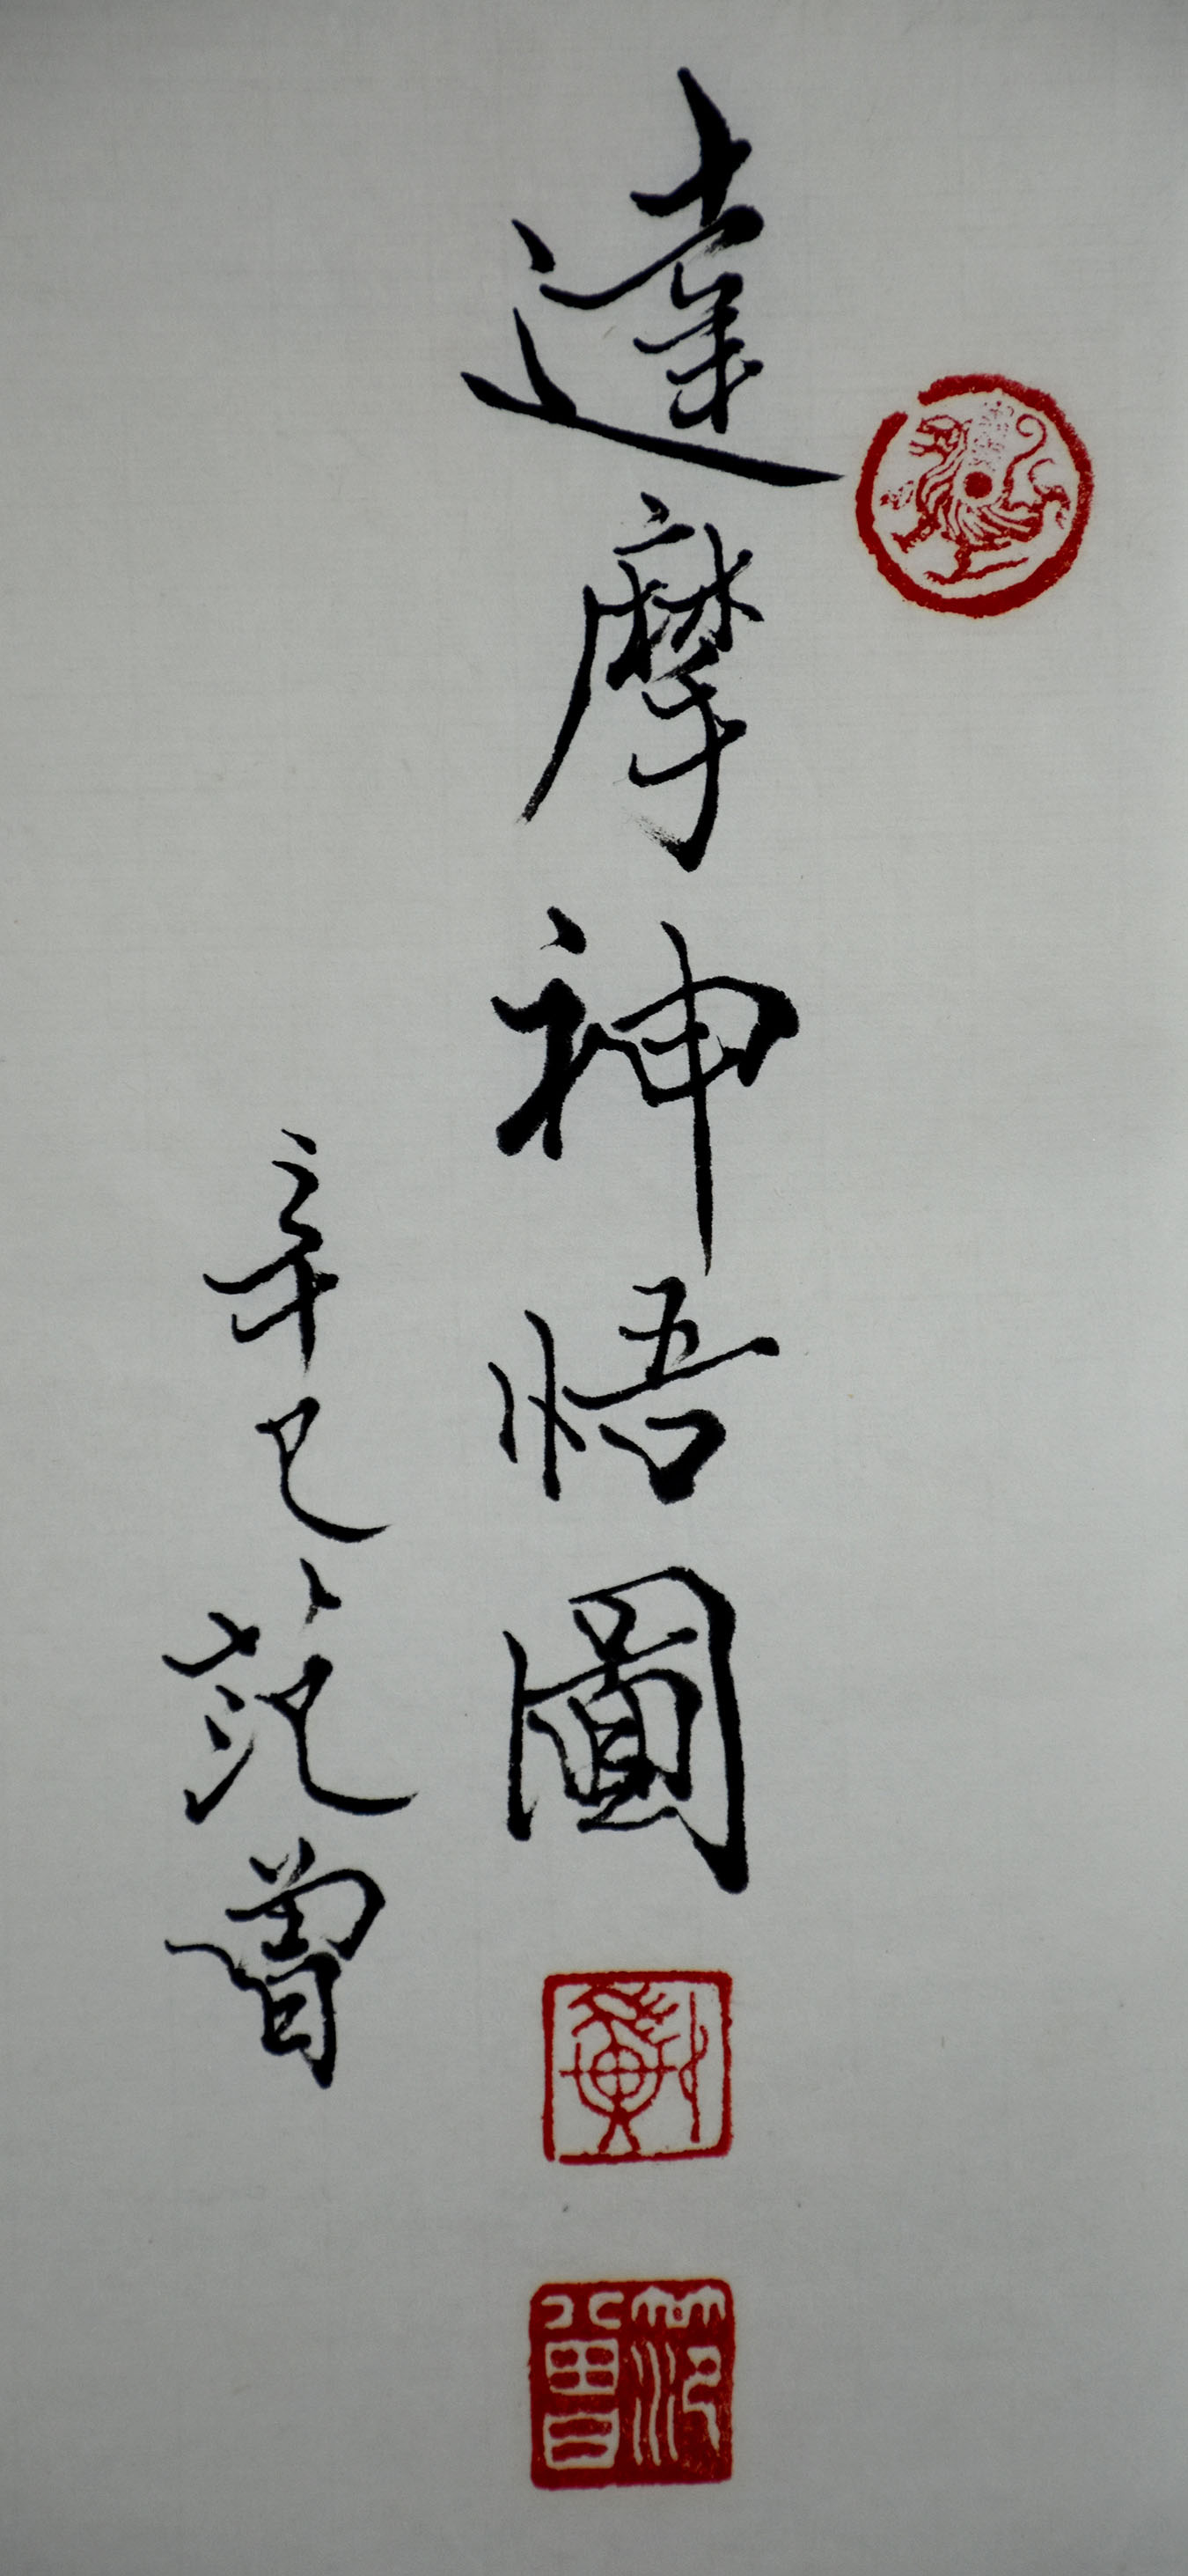 達摩神悟圖
辛巳范曾
范曾